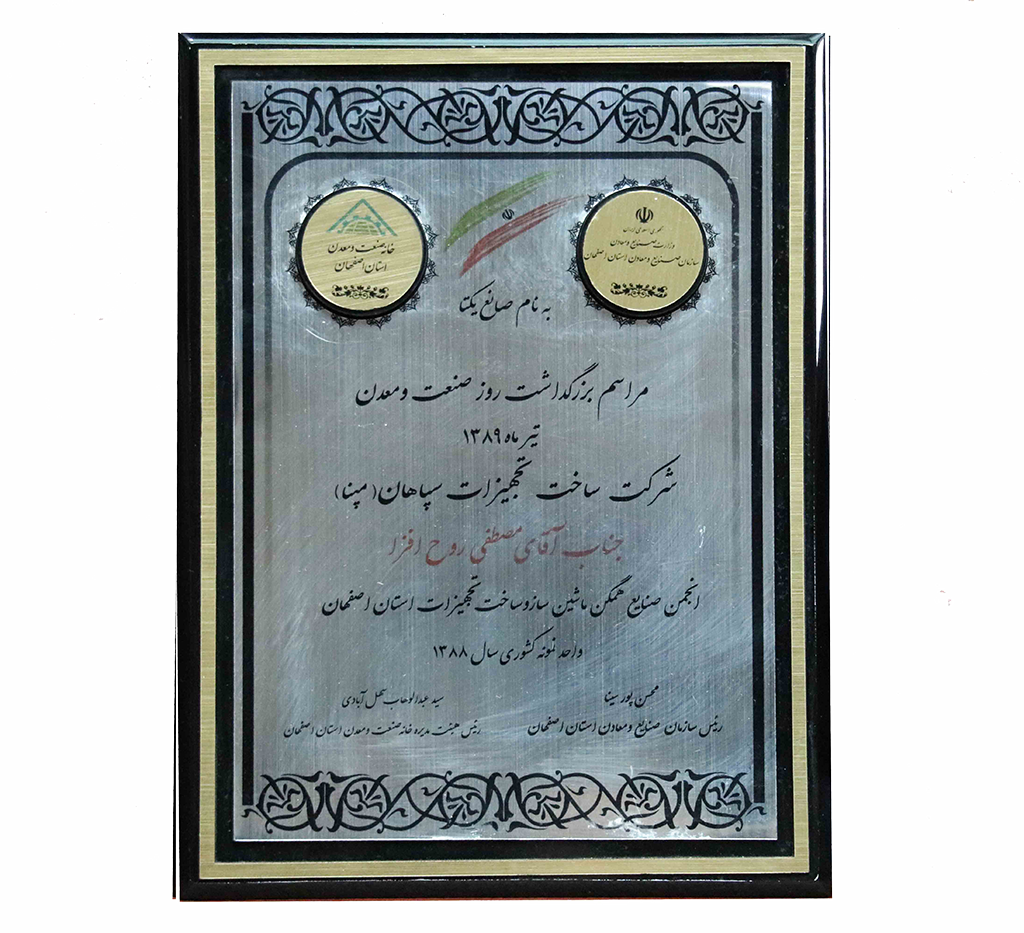 جمهوری اسلامی ایران
وزارت صنایع و معادن
سازمان صنایع و معادن استان اصفهان
خانه صنعت و معدن
استان اصفهان
به نام صانع یکتا
مراسم بزرگداشت روز صنعت و معدن
تیر ماه ۱۳۸۹
شرکت ساخت تجهیزات سپاهان (مپنا)
جناب آقای مصطفی روح افزا
انجمن صنایع همگن ماشین ساز و ساخت تجهیزات استان اصفهان
واحد نمونه کشوری سال ۱۳۸۸
محسن پور سینا
رئیس سازمان صنایع و معادن استان اصفهان
سید عبدالوهاب سهل آبادی
رئیس هیئت مدیره خانه صنعت و معدن استان اصفهان